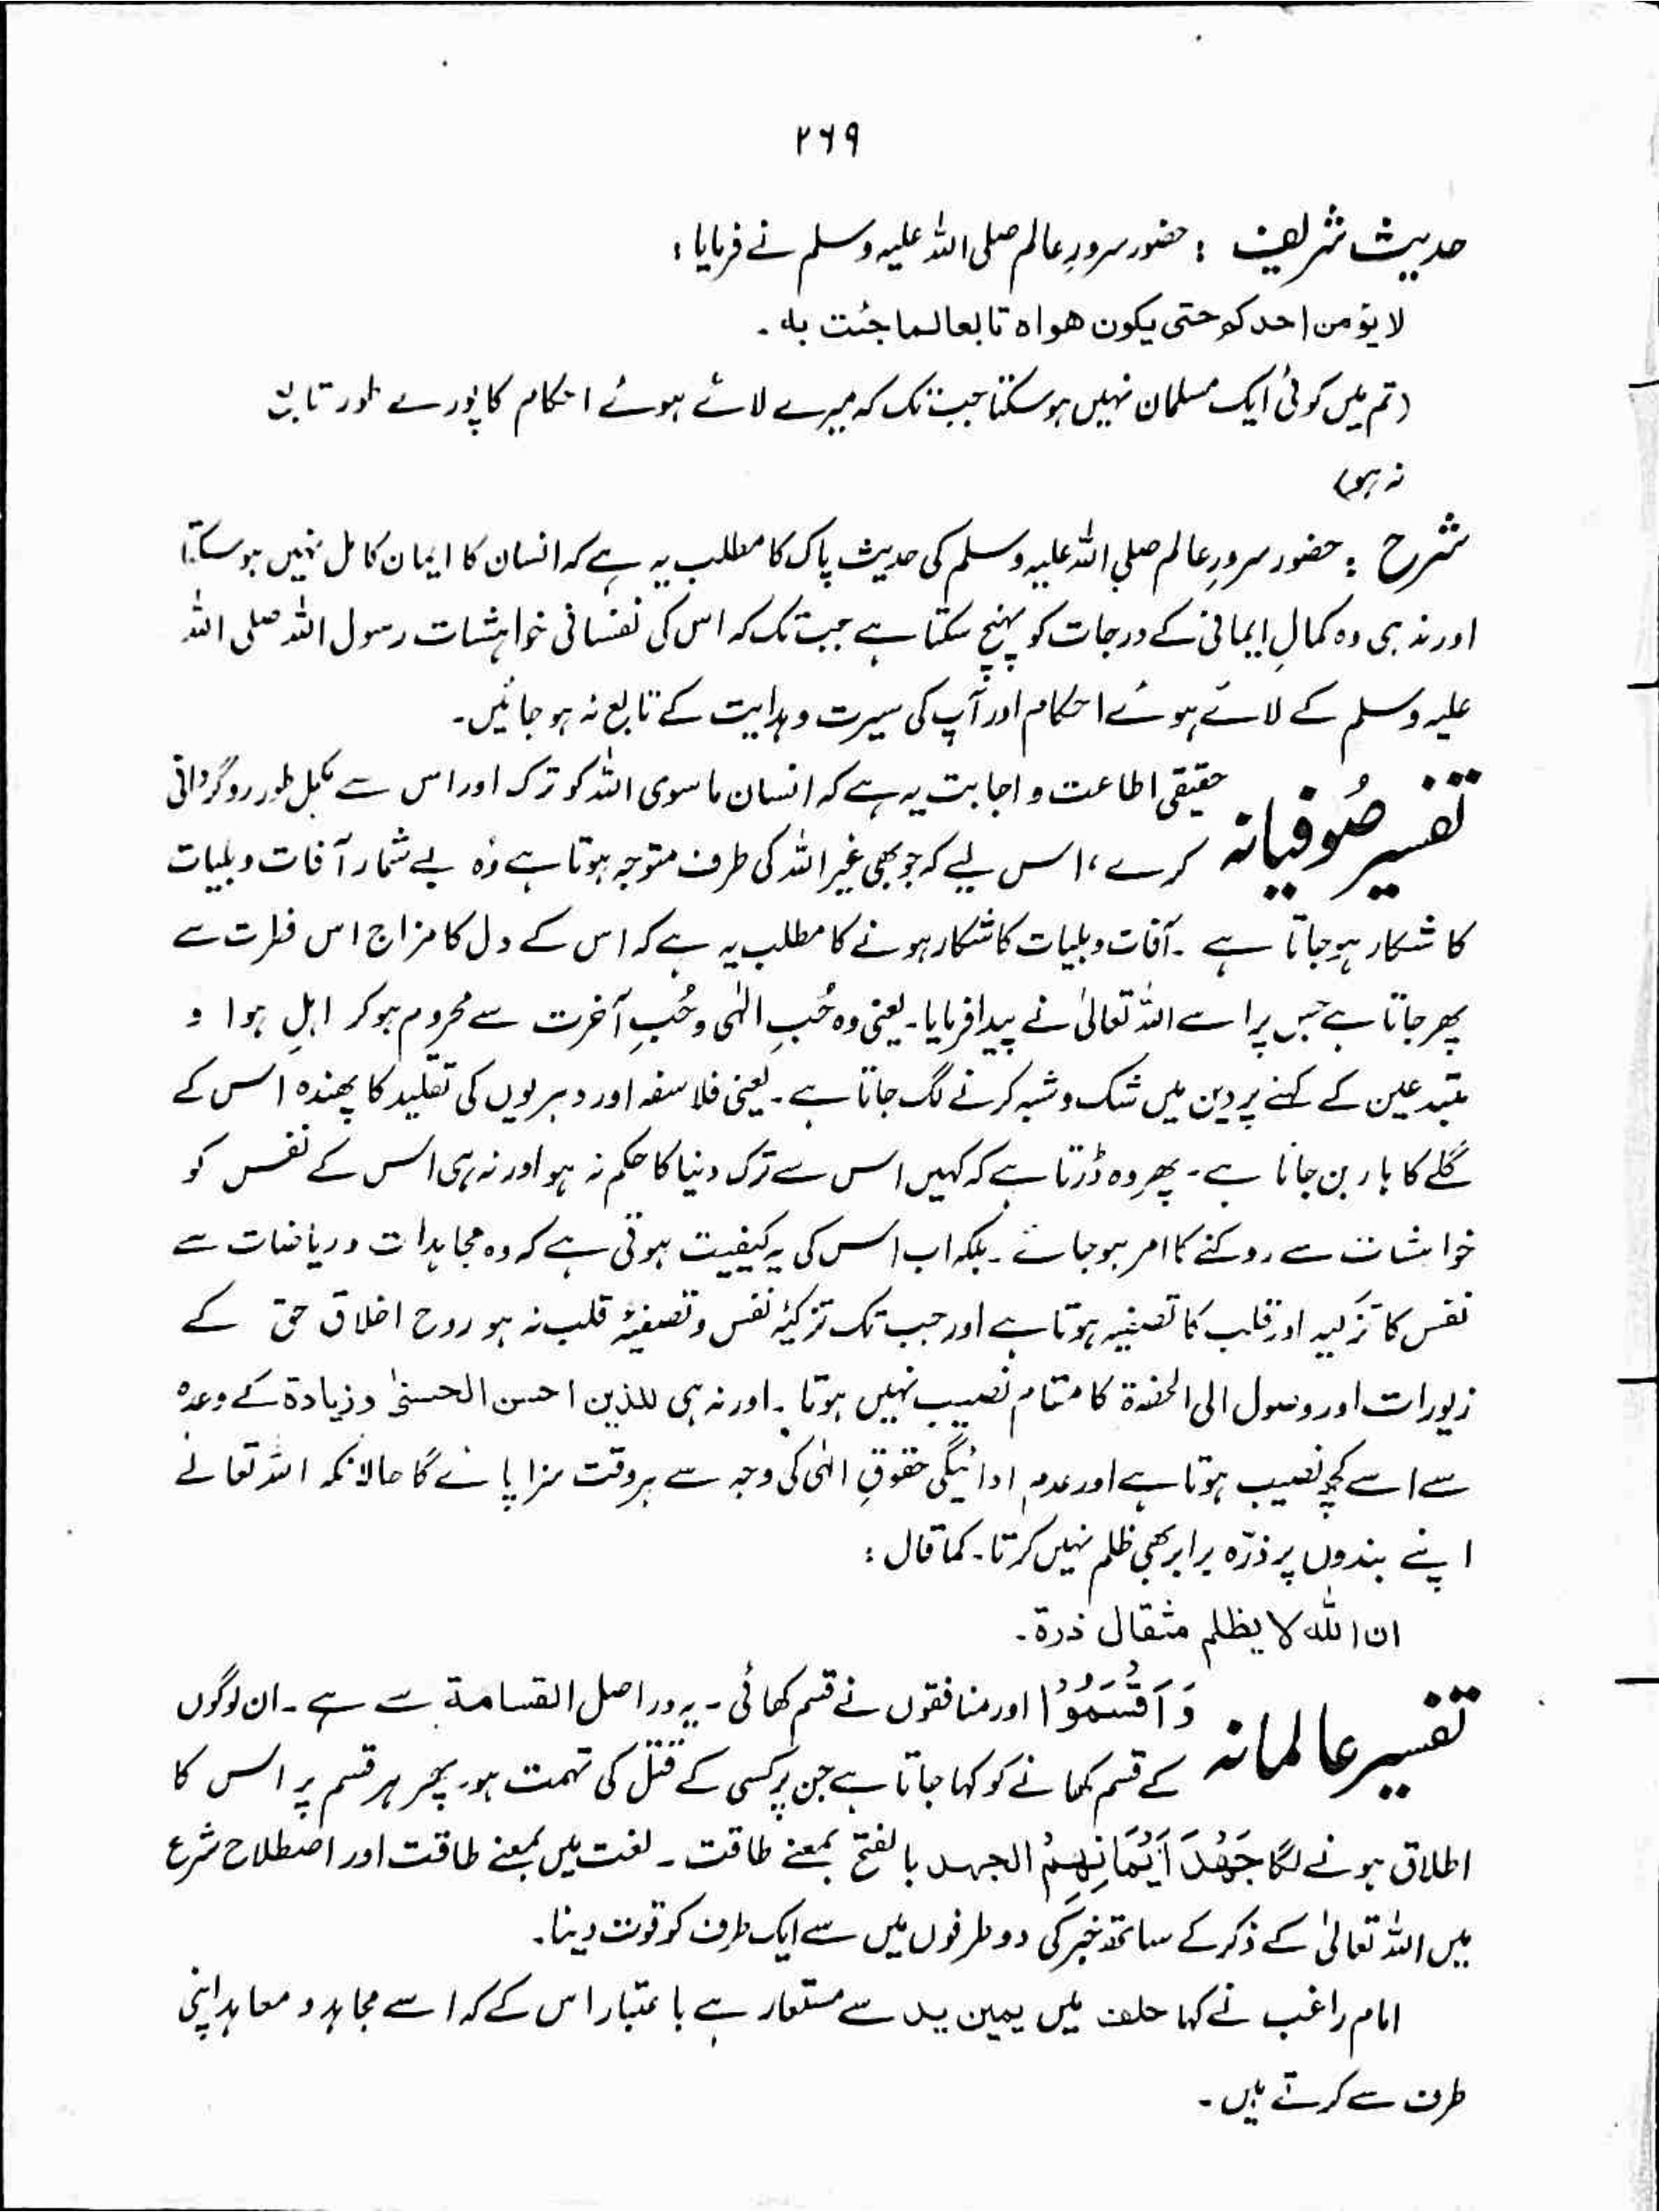 ۲۶۹
حدیث شریف : حضور سرورِ عالم صلی اللہ علیہ وسلم نے فرمایا :
لا یؤمن احدکم حتی یکون ھواہ تابعا لما جئت بہ ۔
(تم میں کوئی ایک مسلمان نہیں ہو سکتا جب تک کہ میرے لائے ہوئے احکام کا پورے طور تابع
نہ ہو)
شرح : حضور سرورِ عالم صلی اللہ علیہ وسلم کی حدیث پاک کا مطلب یہ ہے کہ انسان کا ایمان کامل نہیں ہو سکتا
اور نہ ہی وہ کمالِ ایمانی کے درجات کو پہنچ سکتا ہے جب تک کہ اس کی نفسانی خواہشات رسول اللہ صلی اللہ
علیہ وسلم کے لائے ہوئے احکام اور آپ کی سیرت و ہدایت کے تابع نہ ہو جائیں۔
تفسیر صُوفیانہ حقیقی اطاعت و اجابت یہ ہے کہ انسان ماسوی اللہ کو ترک اور اس سے مکمل طور روگردانی
کرے ، اس لیے کہ جو بھی غیر اللہ کی طرف متوجہ ہوتا ہے وُہ بے شمار آفات و بلیات
کا شکار ہو جاتا ہے ۔ آفات و بلیات کا شکار ہونے کا مطلب یہ ہے کہ اس کے دل کا مزاج اس فطرت سے
پھر جاتا ہے جس پر اسے اللہ تعالیٰ نے پیدا فرمایا ۔ یعنی وہ حُبِ الٰہی و حُبِ آخرت سے محروم ہو کر اہلِ ہوا و
مبتدعین کے کہنے پر دین میں شک و شبہ کرنے لگ جاتا ہے ۔ یعنی فلاسفہ اور دہریوں کی تقلید کا پھندہ اس کے
گلے کا ہار بن جاتا ہے ۔ پھر وہ ڈرتا ہے کہ کہیں اس سے ترک دنیا کا حکم نہ ہو اور نہ ہی اس کے نفس کو
خواہشات سے روکنے کا امر ہو جائے ۔ بلکہ اب اس کی یہ کیفیت ہوتی ہے کہ وہ مجاہدات و ریاضات سے
نفس کا تزکیہ اور قلب کا تصفیہ ہوتا ہے اور جب تک تزکیۂ نفس و تصفیۂ قلب نہ ہو روح اخلاق حق کے
زیورات اور وصول الی الحضرۃ کا مقام نصیب نہیں ہوتا ۔ اور نہ ہی للذین احسن الحسنیٰ و زیادۃ کے وعدہ
سے اسے کچھ نصیب ہوتا ہے اور عدمِ ادائیگی حقوقِ الٰہی کی وجہ سے ہر وقت سزا پائے گا حالانکہ اللہ تعالے
اپنے بندوں پر ذرّہ برابر بھی ظلم نہیں کرتا ۔ کما قال :
ان اللہ لا یظلم مثقال ذرۃ ۔
تفسیر عالمانہ وَ اَقْسَمُوْا اور منافقوں نے قسم کھائی ۔ یہ دراصل القسامۃ سے ہے ۔ ان لوگوں
کے قسم کھانے کو کہا جاتا ہے جن پر کسی کے قتل کی تہمت ہو ۔ پھر ہر قسم پر اس کا
اطلاق ہونے لگا جَھْدَ اَیْمَانِھِمْ الجہد بالفتح بمعنے طاقت ۔ لغت میں بمعنے طاقت اور اصطلاح شرع
میں اللہ تعالیٰ کے ذکر کے ساتھ خبر کی دو طرفوں میں سے ایک طرف کو قوت دینا۔
امام راغب نے کہا حلف میں یمین ید سے مستعار ہے باعتبار اس کے کہ اسے مجاہد و معاہد اپنی
طرف سے کرتے ہیں ۔